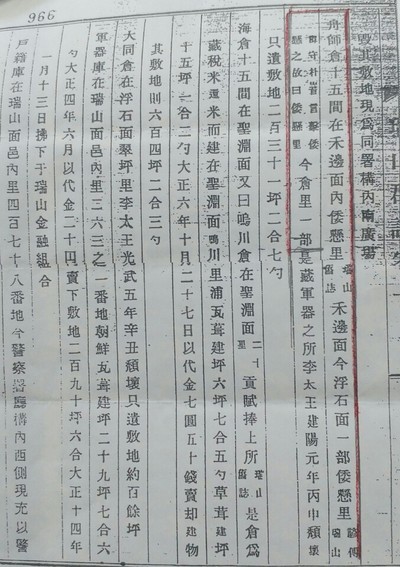 966
曁其敷地現爲同署構內南廣場
舟師倉十五間在禾邊面內倭懸里瑞山舊誌禾邊面今浮石面一部倭懸里
國守朴首言擊倭懸之故曰倭懸里今倉里一部是藏軍器之所李太王建陽元年丙申頹壞
只遺敷地二百三十一坪二合七勺
海倉十五間在聖淵面又曰鳴川倉在聖淵面二十里貢賦捧上所瑞山舊誌是倉爲
藏稅米還米而建在聖淵面鳴川里浦瓦葺建坪六坪七合五勺草葺建坪
十五坪一合二勺大正六年十月二十七日以代金七圓五十錢賣却建物
其敷地則六百四坪二合三勺
大同倉在浮石面翠坪里李太王光武五年辛丑頹壞只遺敷地約百餘坪
軍器庫在瑞山面邑內里三六三之一番地朝鮮瓦葺建坪二十九坪七合六
勺大正四年六月以代金二十四賣下敷地二百九十坪六合大正十四年
一月十三日拂下于瑞山金融組合
戶籍庫在瑞山面邑內里四百七十八番地今警察署廳構內西側現充以警